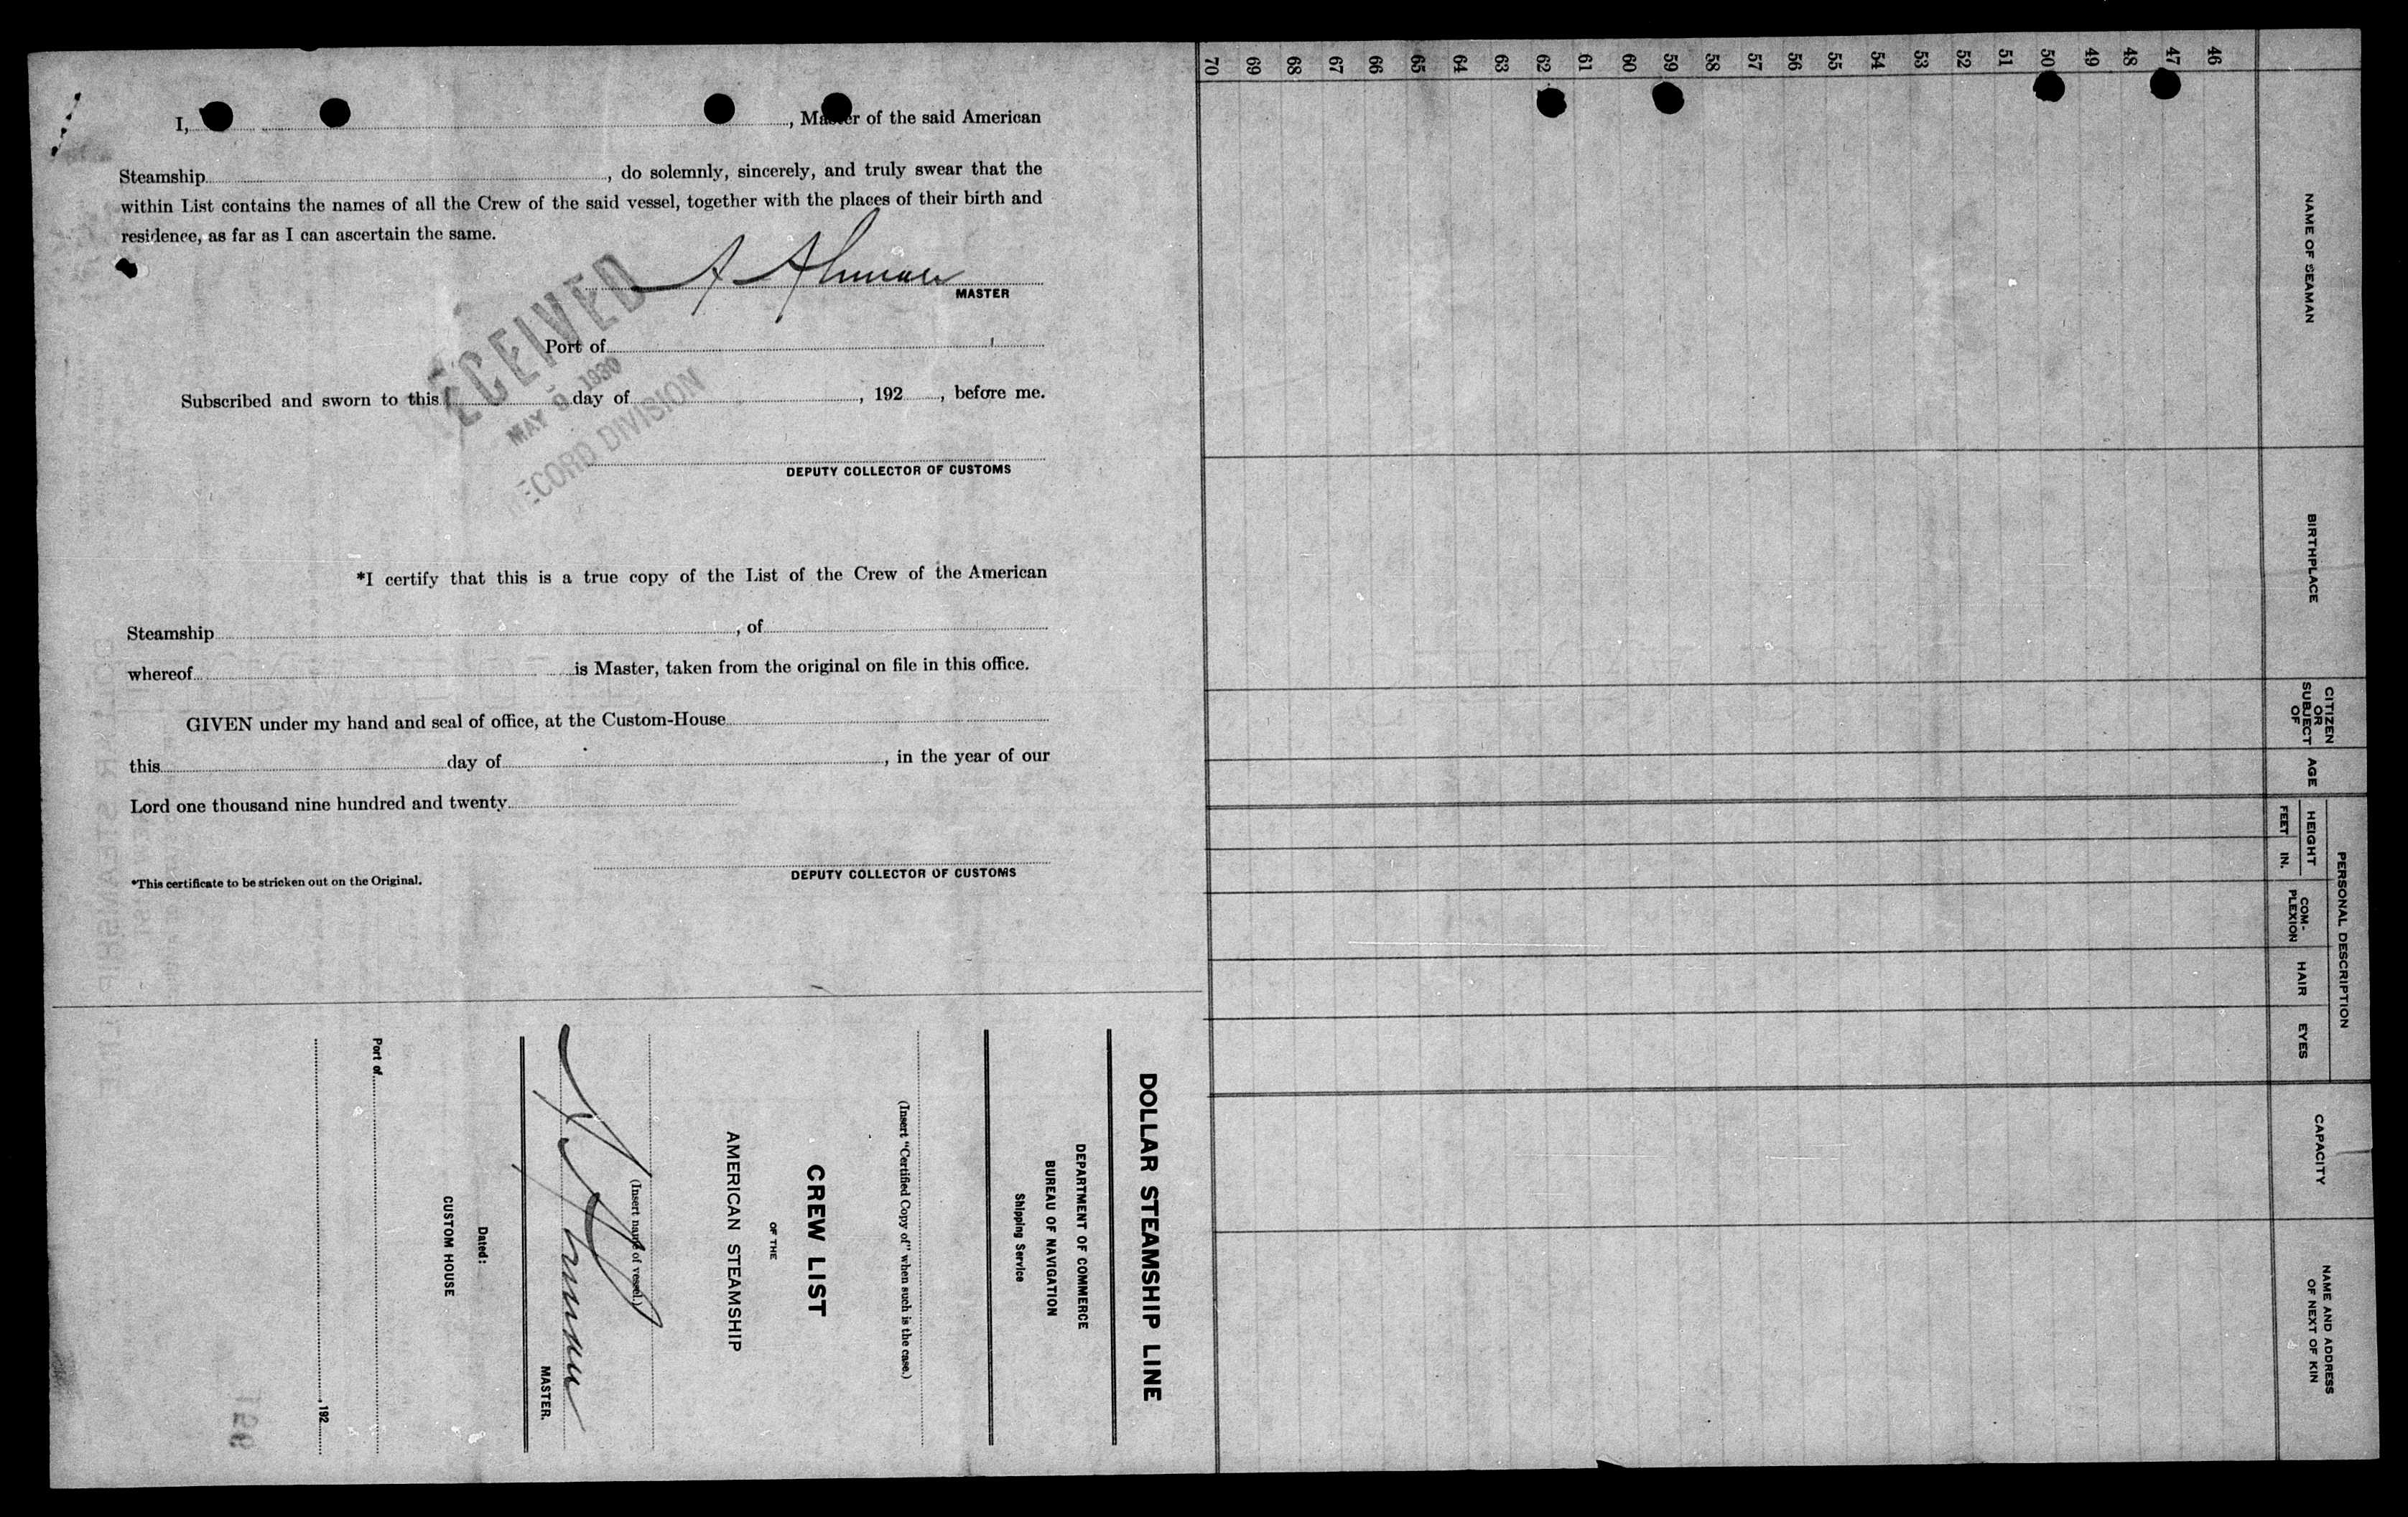 I, , Master of the said American
Steamship , do solemnly, sincerely, and truly swear that the
within List contains the names of all the Crew of the said vessel, together with the places of their birth and
residence, as far as I can ascertain the same.
A
MASTER
Port of
Subscribed and sworn to this day of , 192 , before me.
DEPUTY COLLECTOR OF CUSTOMS
RECEIVED
MAY 9 1930
RECORD DIVISION
*I certify that this is a true copy of the List of the Crew of the American
Steamship , of
whereof is Master, taken from the original on file in this office.
GIVEN under my hand and seal of office, at the Custom-House
this day of , in the year of our
Lord one thousand nine hundred and twenty
DEPUTY COLLECTOR OF CUSTOMS
*This certificate to be stricken out on the Original.
DOLLAR STEAMSHIP LINE
DEPARTMENT OF COMMERCE
BUREAU OF NAVIGATION
Shipping Service
(Insert "Certified Copy of" when such is the case.)
CREW LIST
OF THE
AMERICAN STEAMSHIP
(Insert name of vessel.)
A
MASTER.
Dated:
CUSTOM HOUSE
Port of
, 192
156
PERSONAL DESCRIPTION
NAME OF SEAMAN
BIRTHPLACE
CITIZEN
OR
SUBJECT
OF
AGE
HEIGHT
FEET IN.
COM-
PLEXION
HAIR
EYES
CAPACITY
NAME AND ADDRESS
OF NEXT OF KIN
46
47
48
49
50
51
52
53
54
55
56
57
58
59
60
61
62
63
64
65
66
67
68
69
70